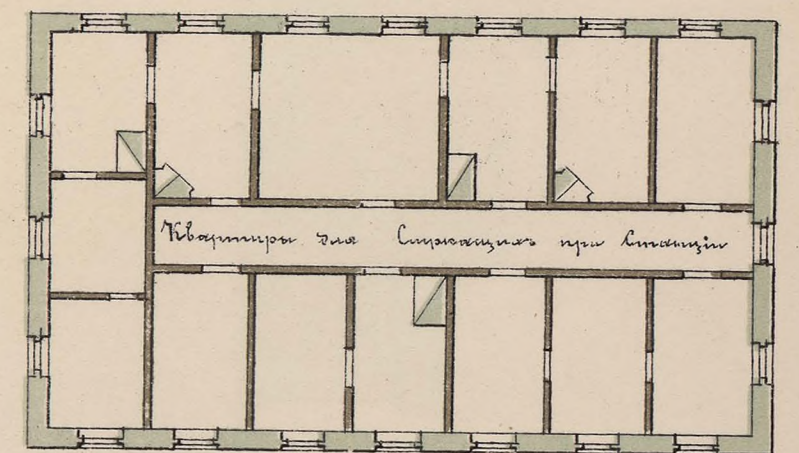 Квартиры для Служащихъ при Станціи